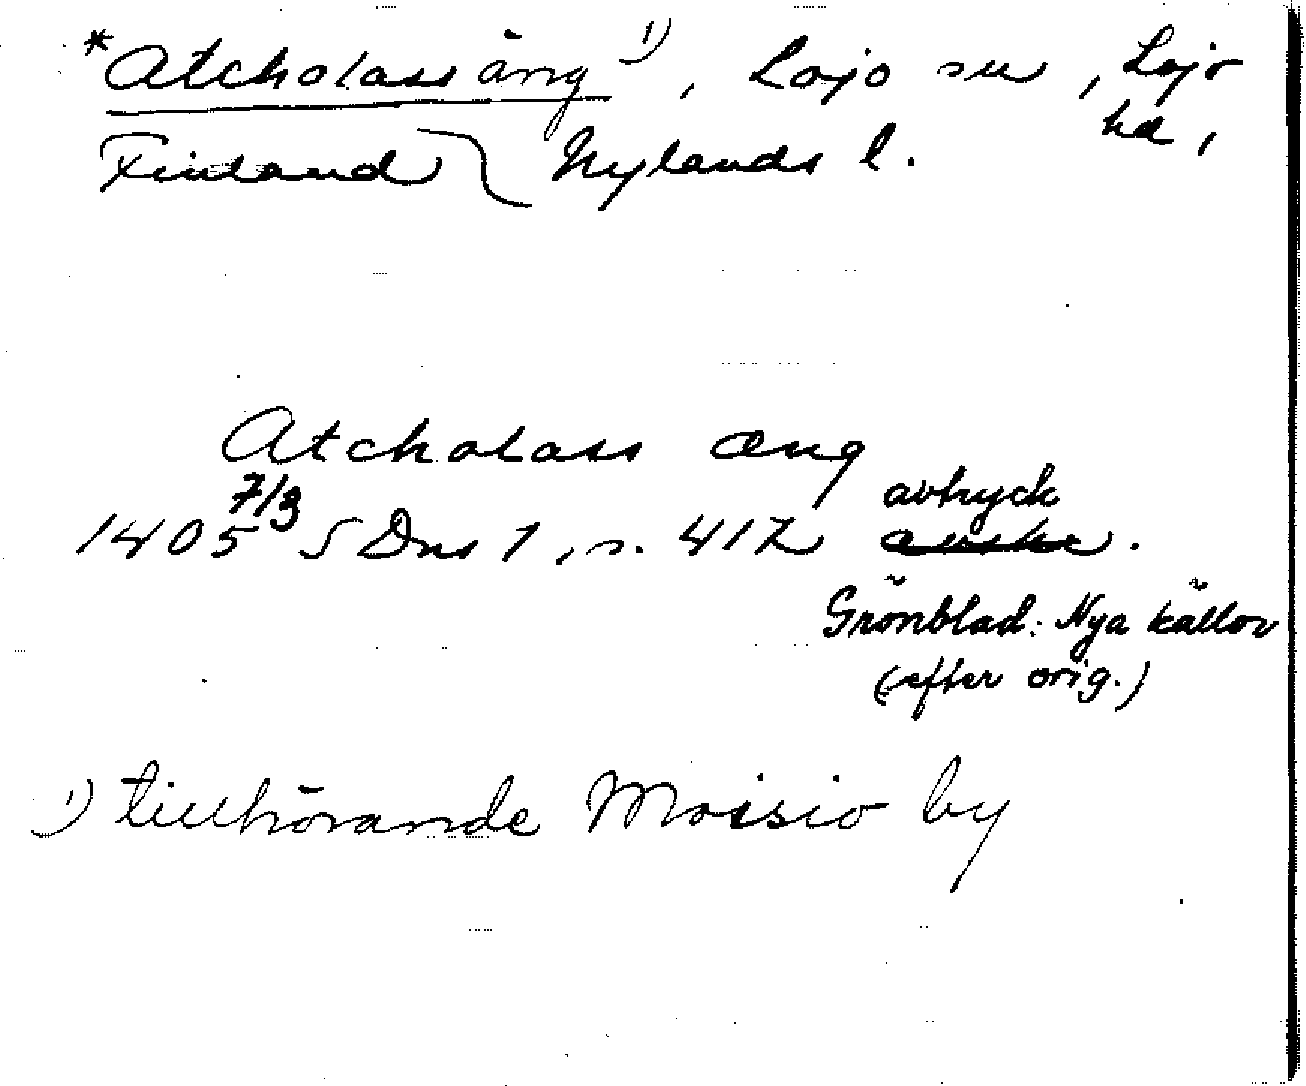 *Atcholassäng 1), Lojo sn, Lojo hd,
Finland } Nylands l.
Atcholass æng
1405 7/3 SDns 1, s. 412 avtryck.
Grönblad: Nya källor
(efter orig.)
1) tillhörande Moisio by